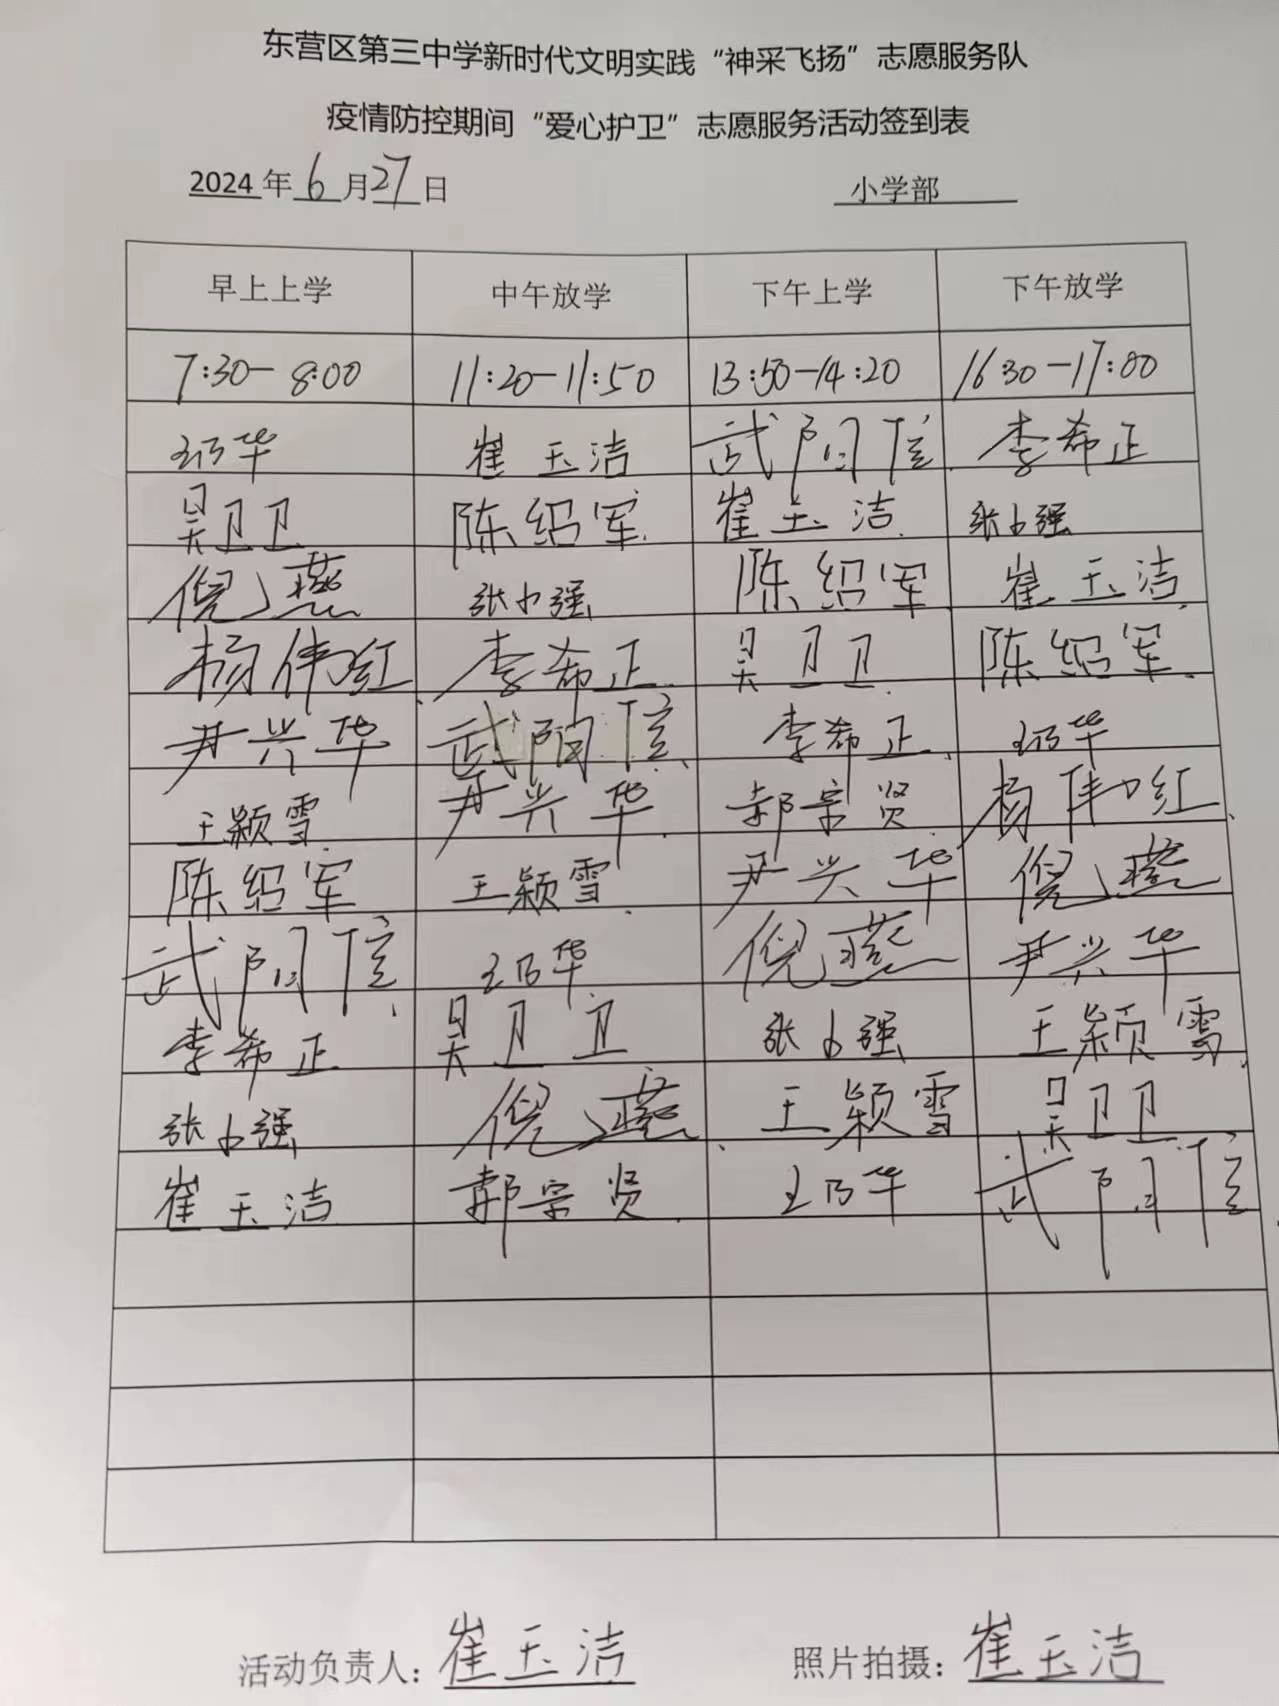 东营区第三中学新时代文明实践“神采飞扬”志愿服务队
疫情防控期间“爱心护卫”志愿服务活动签到表
2024年6月27日 小学部
早上上学 中午放学 下午上学 下午放学
7:30-8:00 11:20-11:50 13:50-14:20 16:30-17:00
王乃华 崔玉洁 武阳信 李希正
吴卫卫 陈绍军 崔玉洁 张小强
倪燕 张小强 陈绍军 崔玉洁
杨伟红 李希正 吴卫卫 陈绍军
尹兴华 武阳信 李希正 王乃华
王颖雪 尹兴华 郝宗贤 杨伟红
陈绍军 王颖雪 尹兴华 倪燕
武阳信 王乃华 倪燕 尹兴华
李希正 吴卫卫 张小强 王颖雪
张小强 倪燕 王颖雪 吴卫卫
崔玉洁 郝宗贤 王乃华 武阳信
活动负责人：崔玉洁 照片拍摄：崔玉洁